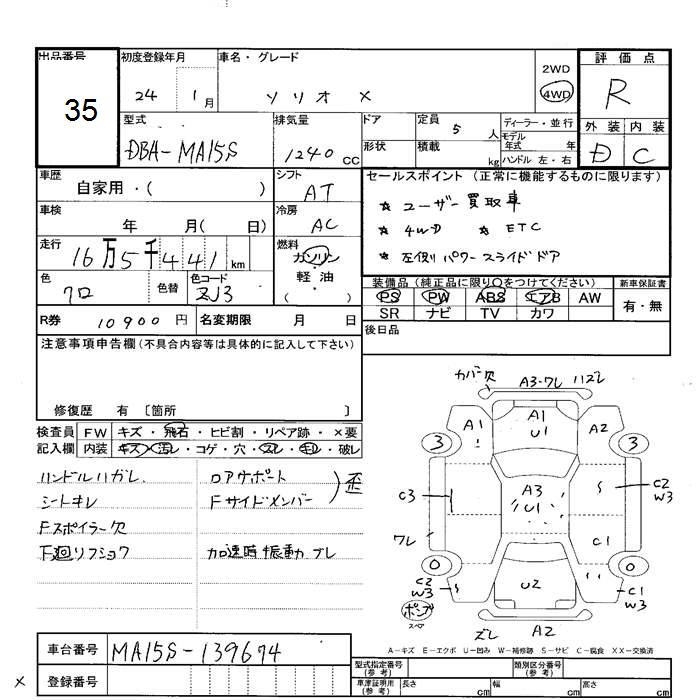 出品番号 初度登録年月 車名・グレード 2WD 評価点
35 24 1月 ソリオ X 4WD R
型式 排気量 ドア 定員 5 人 ディーラー・並行 外装 内装
DBA-MA15S 1240 CC 形状 積載 kg モデル年式 年 D C
ハンドル 左・右
車歴 自家用・( ) シフト AT セールスポイント (正常に機能するものに限ります)
車検 年 月( 日) 冷房 AC ★ ユーザー買取車
★ 4WD ★ ETC
走行 16万5千441 km 燃料 ガソリン・軽油 ( ) ★ 左側パワースライドドア
色 クロ 色替 色コード ZJ3 装備品 (純正品に限り○をつけてください) 新車保証書
PS PW ABS エアB AW 有・無
R券 10900 円 名変期限 月 日 SR ナビ TV カワ
注意事項申告欄 (不具合内容等は具体的に記入して下さい) 後日品
修復歴 有 〔箇所 〕
検査員 FW キズ・飛石・ヒビ割・リペア跡・×要
記入欄 内装 キズ・汚レ・コゲ・穴・スレ・キレ・破レ
ハンドルハガレ ロアサポート
シートキレ Fサイドメンバー 歪
Fスポイラー欠
下廻リフショク 加速時振動ブレ
カバー欠 A3・ワレ ハズレ
A1 A1 U1 A2
3 3
C3 A3 U1 C2 W3
ワレ C1
0 0
C2 W3 U2 C1 W3
ポンプ スペア
ズレ A2
A-キズ E-エクボ U-凹み W-補修跡 S-サビ C-腐食 XX-交換済
車台番号 MA15S-139674 型式指定番号 (参考) 類別区分番号 (参考)
× 登録番号 車庫証明用 (参考) 長さ cm 幅 cm 高さ cm